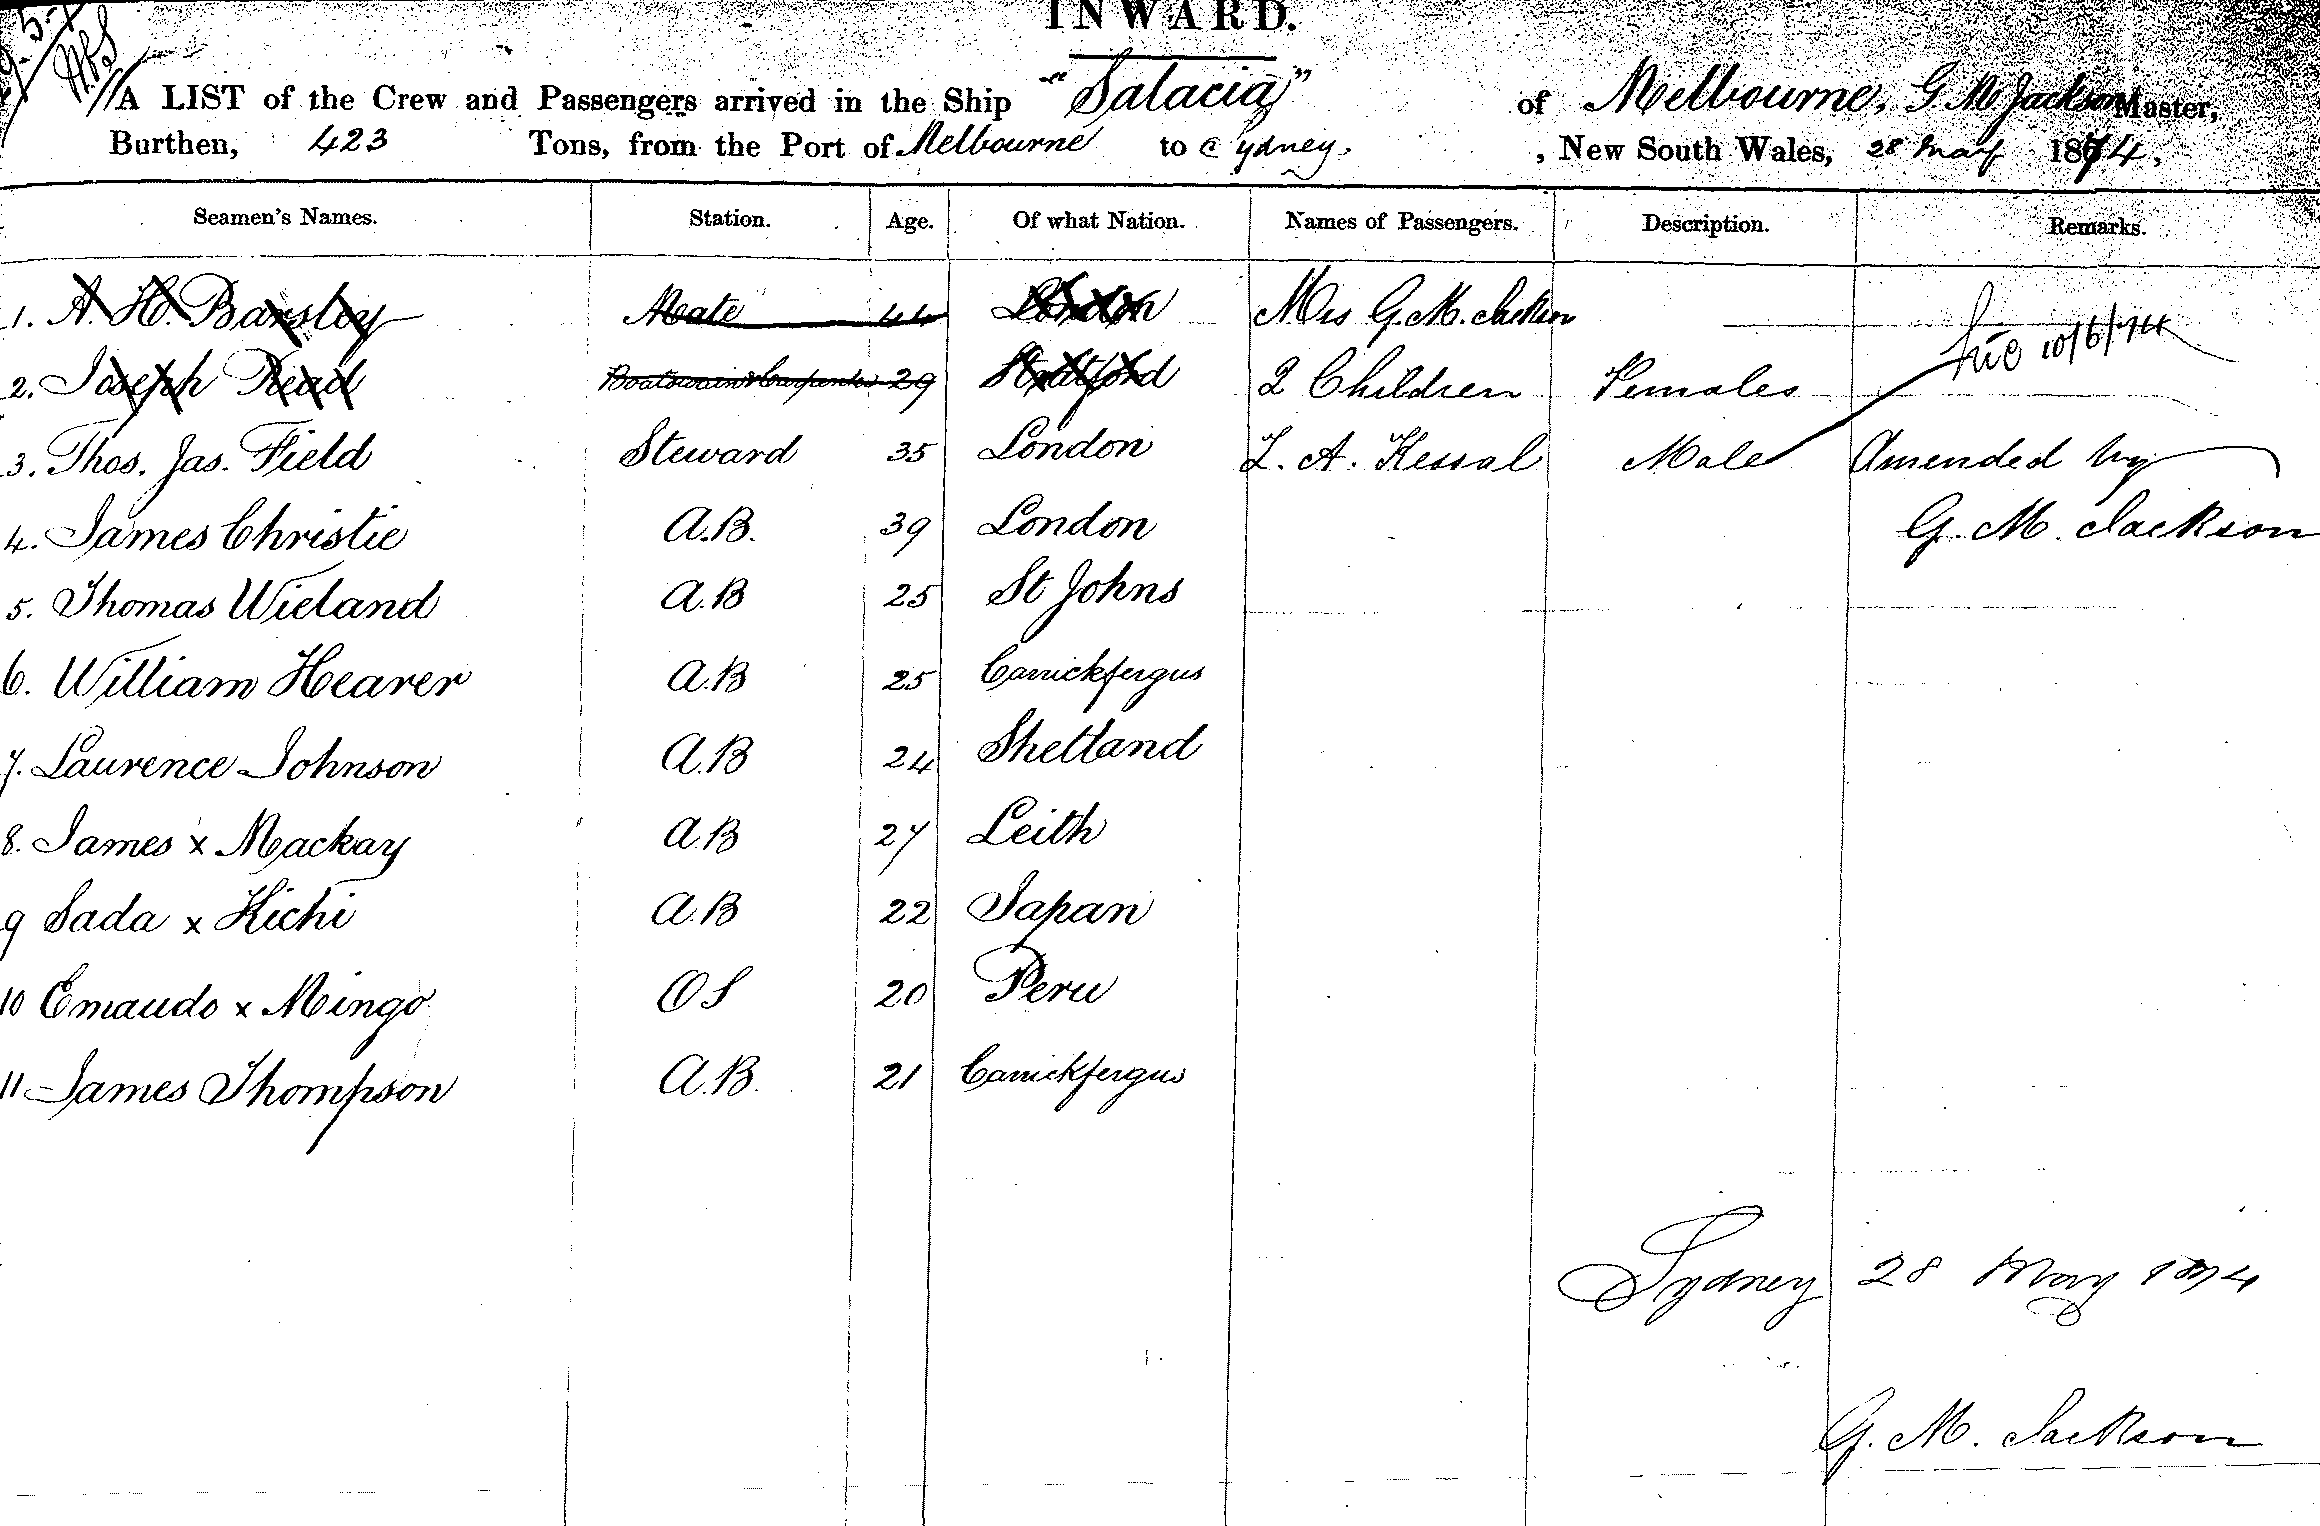 INWARD.
A LIST of the Crew and Passengers arrived in the Ship "Salacia" of Melbourne, G M Jackson Master,
Burthen, 423 Tons, from the Port of Melbourne to Sydney, , New South Wales, 28 May 1874,
Seamen's Names. Station. Age. Of what Nation. Names of Passengers. Description. Remarks.
1. A. H. Barsley Mate 44 London Mrs G. M. Jackson
10/6/74
2. Joseph Read Boatswain & Carpenter 29 Stratford 2 Children Females
3. Thos. Jas. Field Steward 35 London L. A. Kessal Male Amended by
4. James Christie A.B. 39 London G. M. Jackson
5. Thomas Wieland A.B 25 St Johns
6. William Hearer A.B 25 Carrickfergus
7. Laurence Johnson A.B 24 Shetland
8. James x Mackay A.B 27 Leith
9 Sada x Kichi A.B 22 Japan
10 Emaudo x Mingo OS 20 Peru
11 James Thompson A.B. 21 Carrickfergus
Sydney 28 May 1874
G. M. Jackson